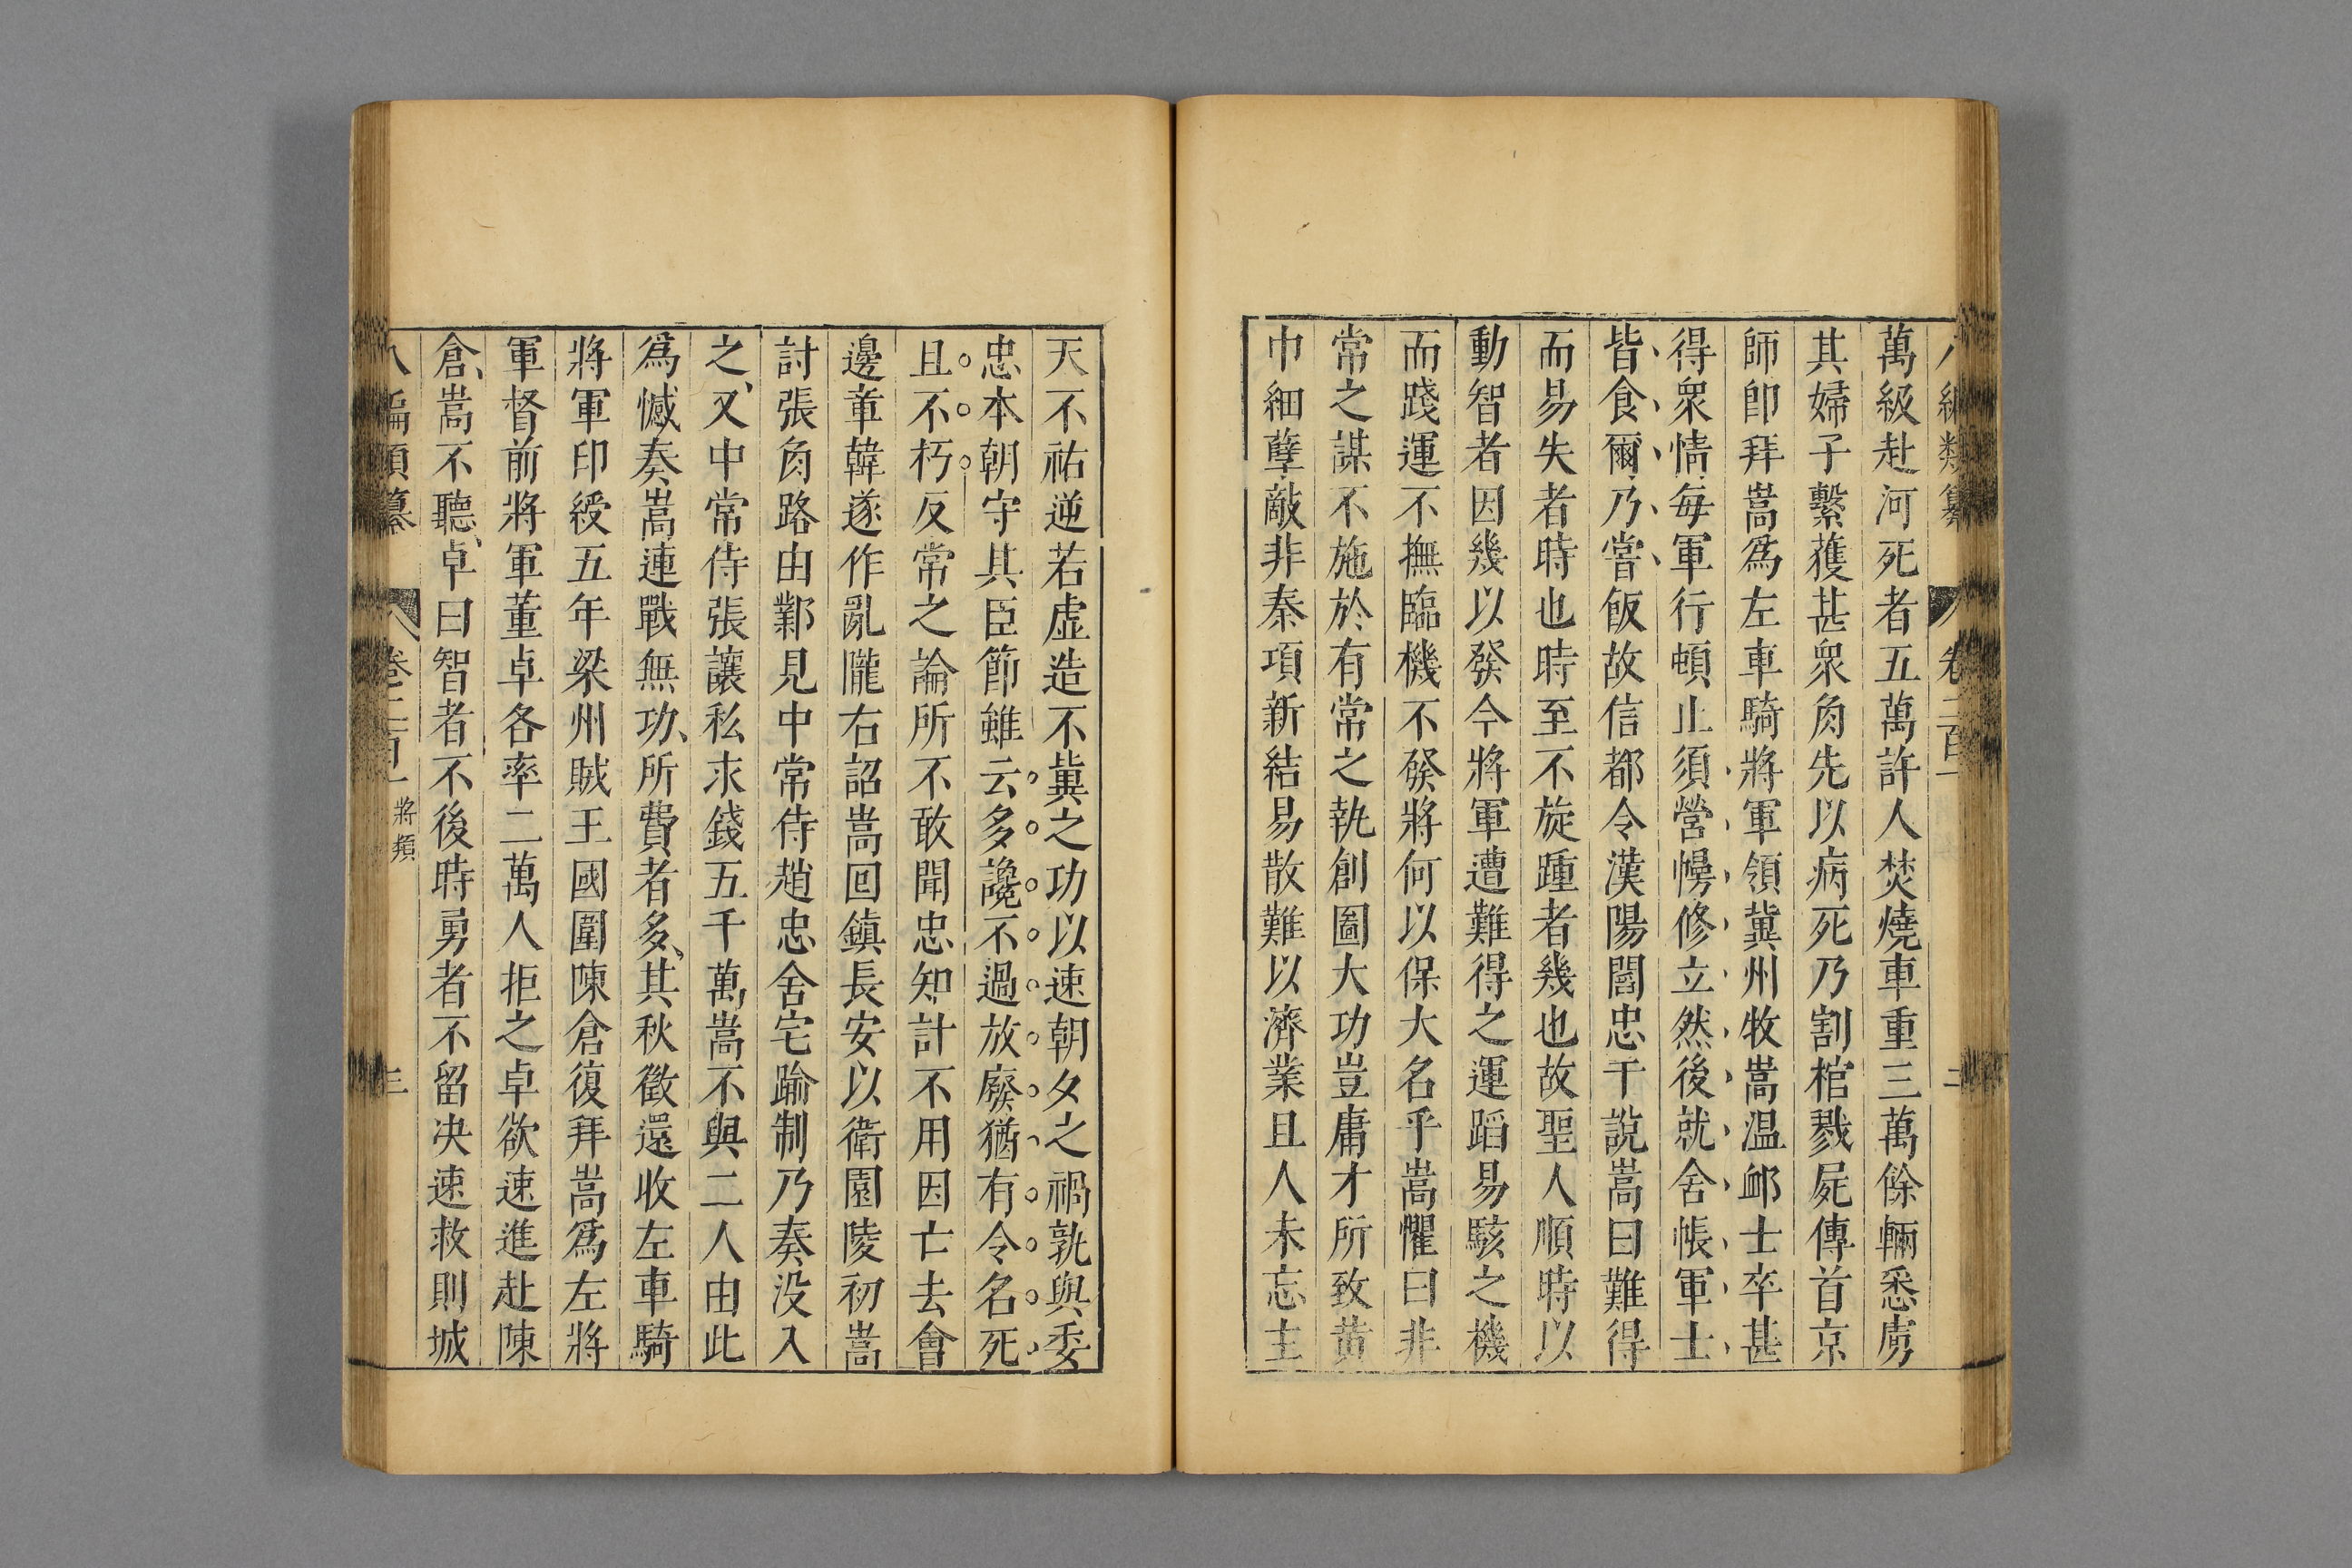 萬級赴河死者五萬許人焚燒車重三萬餘輛悉虜
其婦子繫獲甚衆角先以病死乃割棺戮屍傳首京
師卽拜嵩爲左車騎將軍領冀州牧嵩温䘏士卒甚
得衆情每軍行頓止須營幔修立然後就舍帳軍士
皆食爾乃嘗飯故信都令漢陽閻忠干說嵩曰難得
而易失者時也時至不旋踵者幾也故聖人順時以
動智者因幾以發今將軍遭難得之運蹈易駭之機
而踐運不撫臨機不發將何以保大名乎嵩懼曰非
常之謀不施於有常之埶創圖大功豈庸才所致黃
巾細孽敵非秦項新結易散難以濟業且人未忘主
天不祐逆若虛造不冀之功以速朝夕之禍孰與委
忠本朝守其臣節雖云多讒不過放廢猶有令名死
且不朽反常之論所不敢聞忠知計不用因亡去會
邊章韓遂作亂隴右詔嵩回鎮長安以衛園陵初嵩
討張角路由鄴見中常侍趙忠舍宅踰制乃奏没入
之又中常侍張讓私求錢五千萬嵩不與二人由此
爲憾奏嵩連戰無功所費者多其秋徵還收左車騎
將軍印綬五年梁州賊王國圍陳倉復拜嵩爲左將
軍督前將軍董卓各率二萬人拒之卓欲速進赴陳
倉嵩不聽卓曰智者不後時勇者不留决速救則城
八編類纂 卷二百一 將類 三